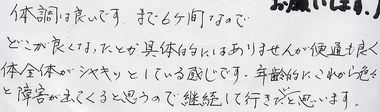 お願いします。
体調は良いです。まで6ヶ間なので
どこが良くなったとか具体的にはありませんが便通も良く
体全体がシャキッとしている感じです。年齢的にこれから色々
と障害が出てくると思うので継続して行きたいと思います。